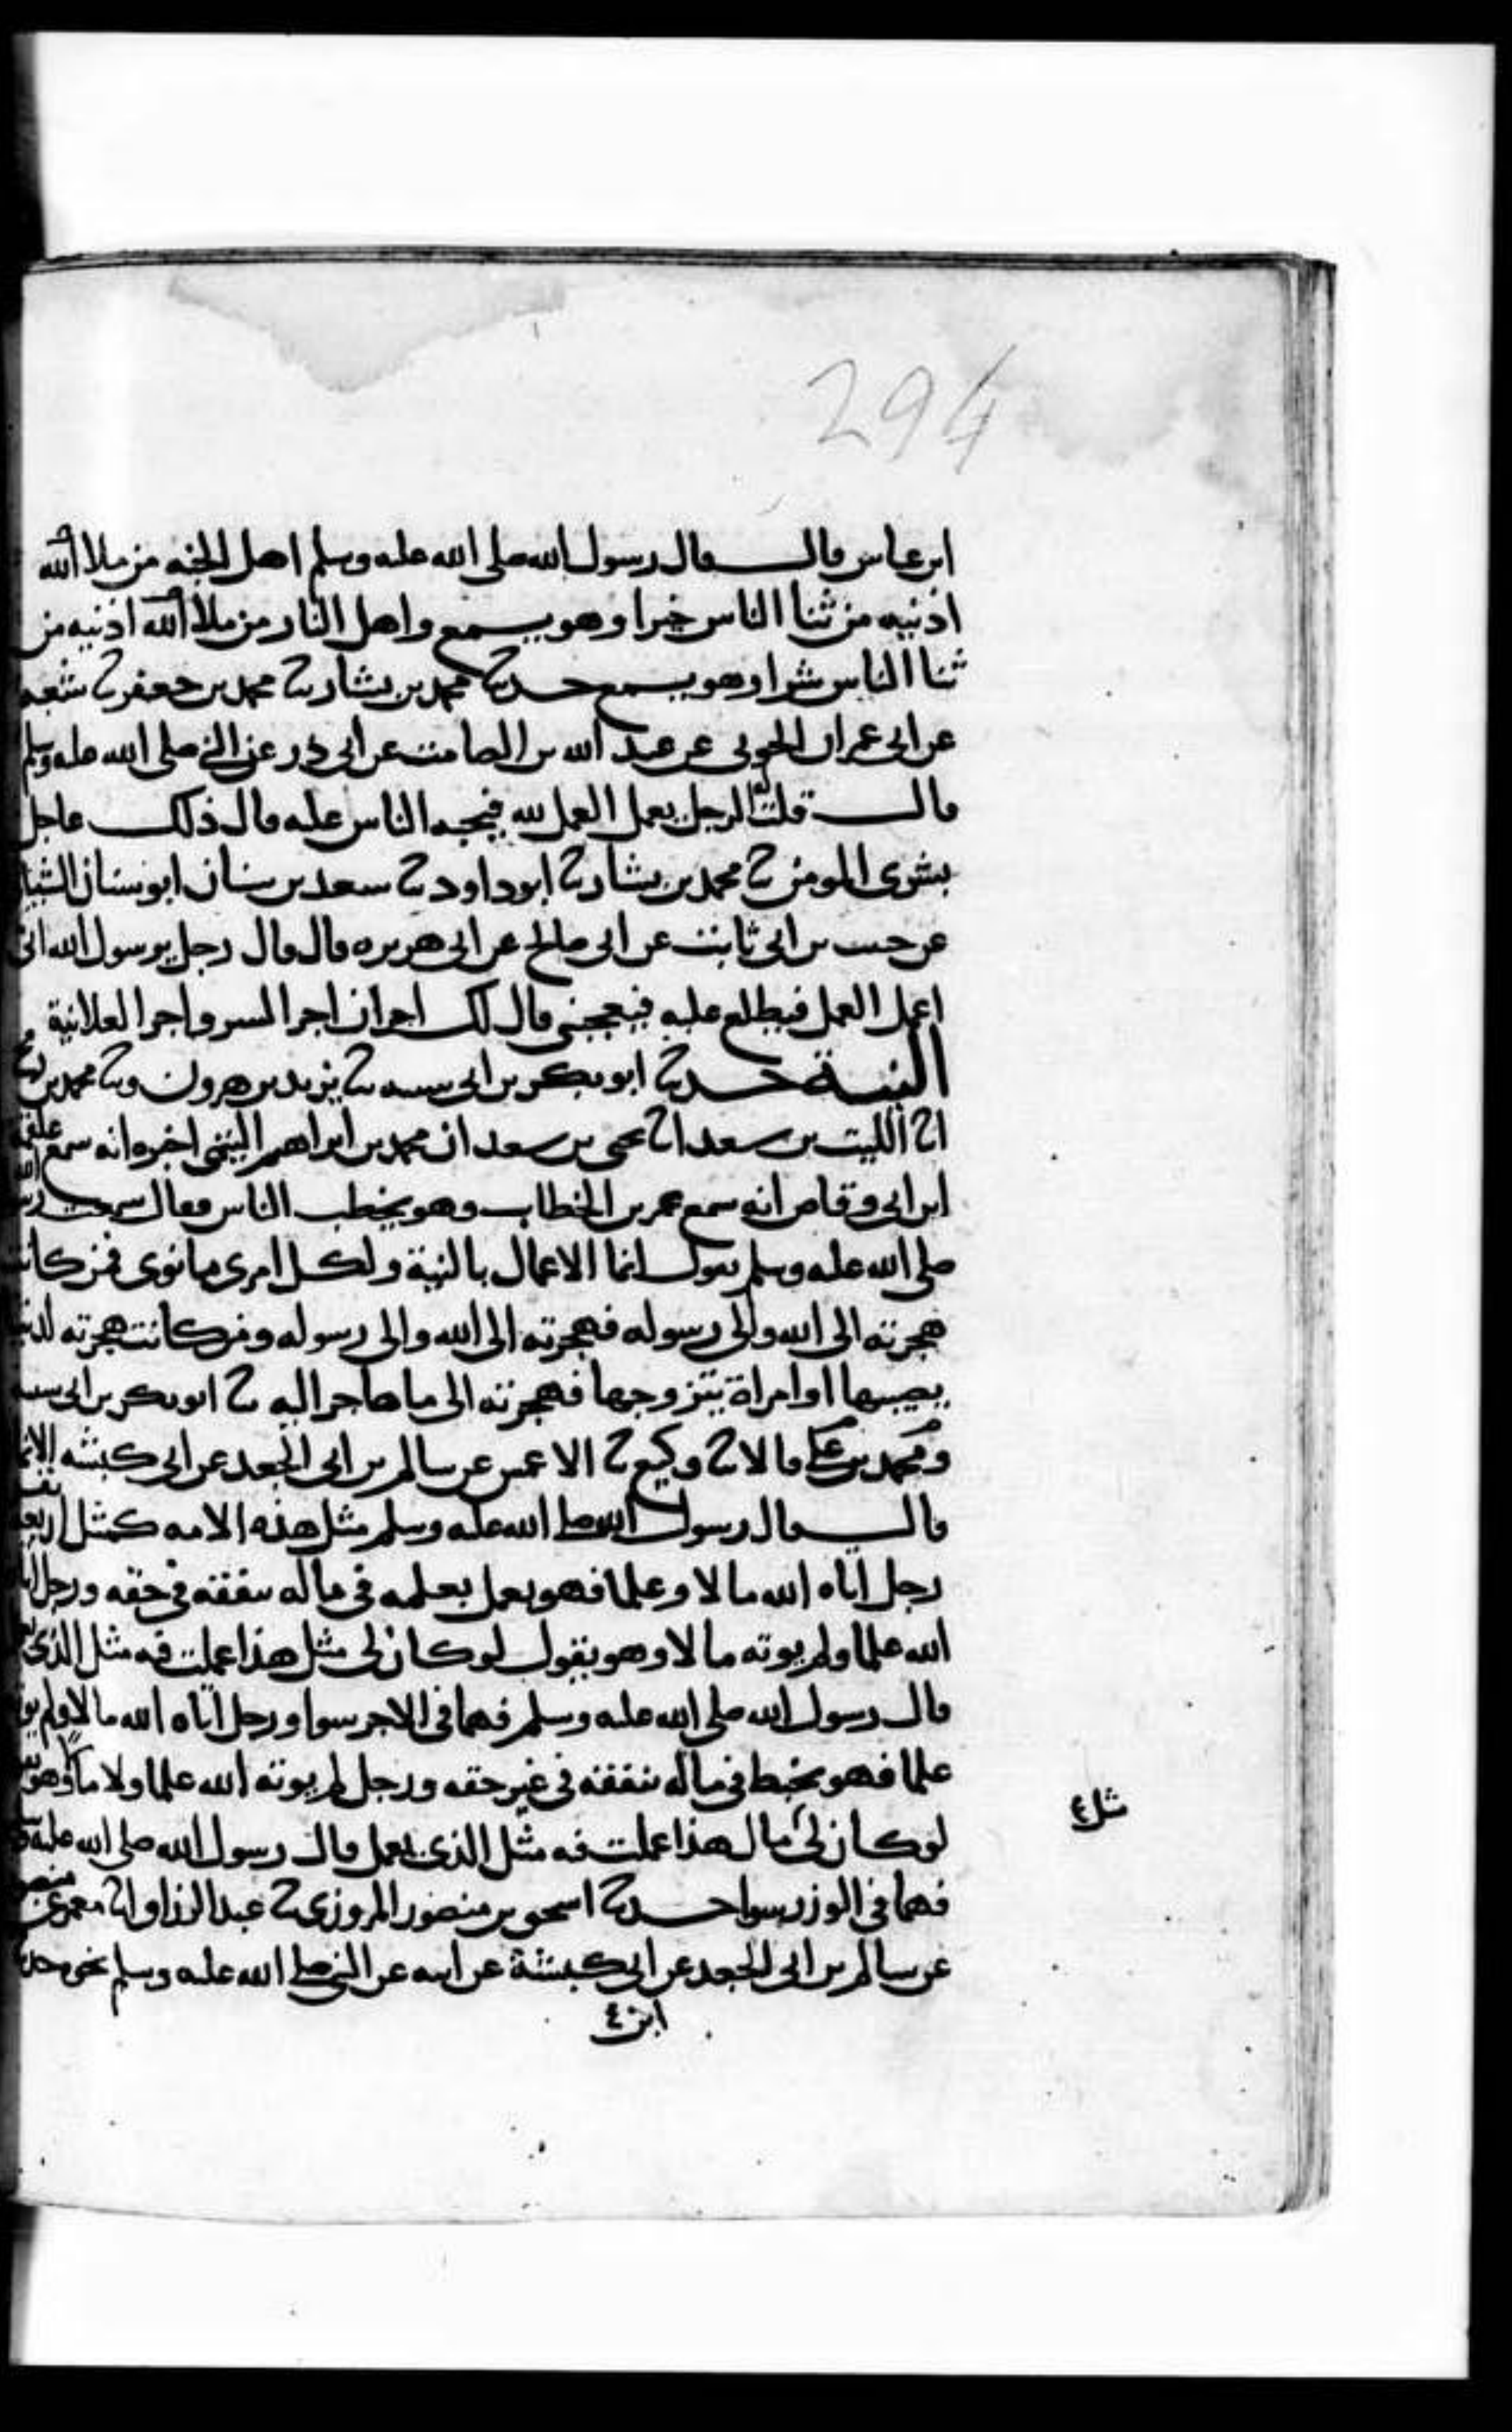 294
ابن عباس قال قال رسول الله صلى الله عليه وسلم اهل الجنه من ملا الله
اذنيه من ثنا الناس خيرا وهو يسمع واهل النار من ملا الله اذنيه من
ثنا الناس شرا وهو يسمع حدثنا محمد بن بشار ثنا محمد بن جعفر ثنا شعبه
عن ابى عمران الجونى عن عبد الله بن الصامت عن ابى ذر عن النبي صلى الله عليه وسلم
قال قلت له الرجل يعمل العمل لله فيحبه الناس عليه قال ذلك عاجل
بشرى المومن ثنا محمد بن بشار ثنا ابو داود ثنا سعيد بن سنان ابو سنان الشيبا
عن حبيب بن ابى ثابت عن ابى صالح عن ابى هريره قال قال رجل يرسول الله انى
اعمل العمل فيطلع عليه فيعجبنى قال لك اجران اجر السر واجر العلانية
النية حدثنا ابو بكر بن ابى شيبه ثنا يزيد بن هرون وثنا محمد بن رمح
انا الليث بن سعد انا يحيى بن سعيد ان محمد بن ابراهيم التيمى اخبره انه سمع علقمة
ابن ابى وقاص انه سمع عمر بن الخطاب وهو يخطب الناس فقال سمعت رسول الله
صلى الله عليه وسلم يقول انما الاعمال بالنية ولكل امرى ما نوى فمن كانت
هجرته الى الله والى رسوله فهجرته الى الله والى رسوله ومن كانت هجرته لدنيا
يصيبها او امراة يتزوجها فهجرته الى ما هاجر اليه ثنا ابو بكر بن ابى شيبه
ومحمد بن على قالا ثنا وكيع ثنا الاعمش عن سالم بن ابى الجعد عن ابى كبشه الانما
قال قال رسول الله صلى الله عليه وسلم مثل هذه الامه كمثل اربعة نفر
رجل اتاه الله مالا وعلما فهو يعمل بعلمه فى ماله ينفقه فى حقه ورجل اتا
الله علما ولم يوته مالا وهو يقول لو كان لى مثل هذا عملت فيه مثل الذى
قال رسول الله صلى الله عليه وسلم فهما فى الاجر سوا ورجل اتاه الله مالا ولم يو
علما فهو يخبط فى ماله ينفقه فى غير حقه ورجل لم يوته الله علما ولا مالا وهو
لو كان لى مال هذا عملت فيه مثل الذى يعمل قال رسول الله صلى الله عليه
مثل ٤
فهما فى الوزر سوا حدثنا اسحق بن منصور المروزى ثنا عبد الرزاق انا معمر عن منصو
عن سالم بن ابى الجعد عن ابى كبشة عن ابيه عن النبي صلى الله عليه وسلم نحو
ابن ٤